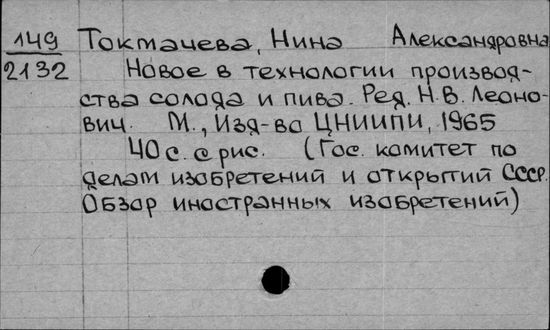 149 Токтачева, Нина Александровна
2132 Новое в технологии производ-
ства солода и пива. Ред. Н.В. Леоно-
вич. М., Изд-во ЦНИИПИ, 1965
40 с. с рис. (Гос. комитет по
делам изобретений и открытий СССР.
Обзор иностранных изобретений)